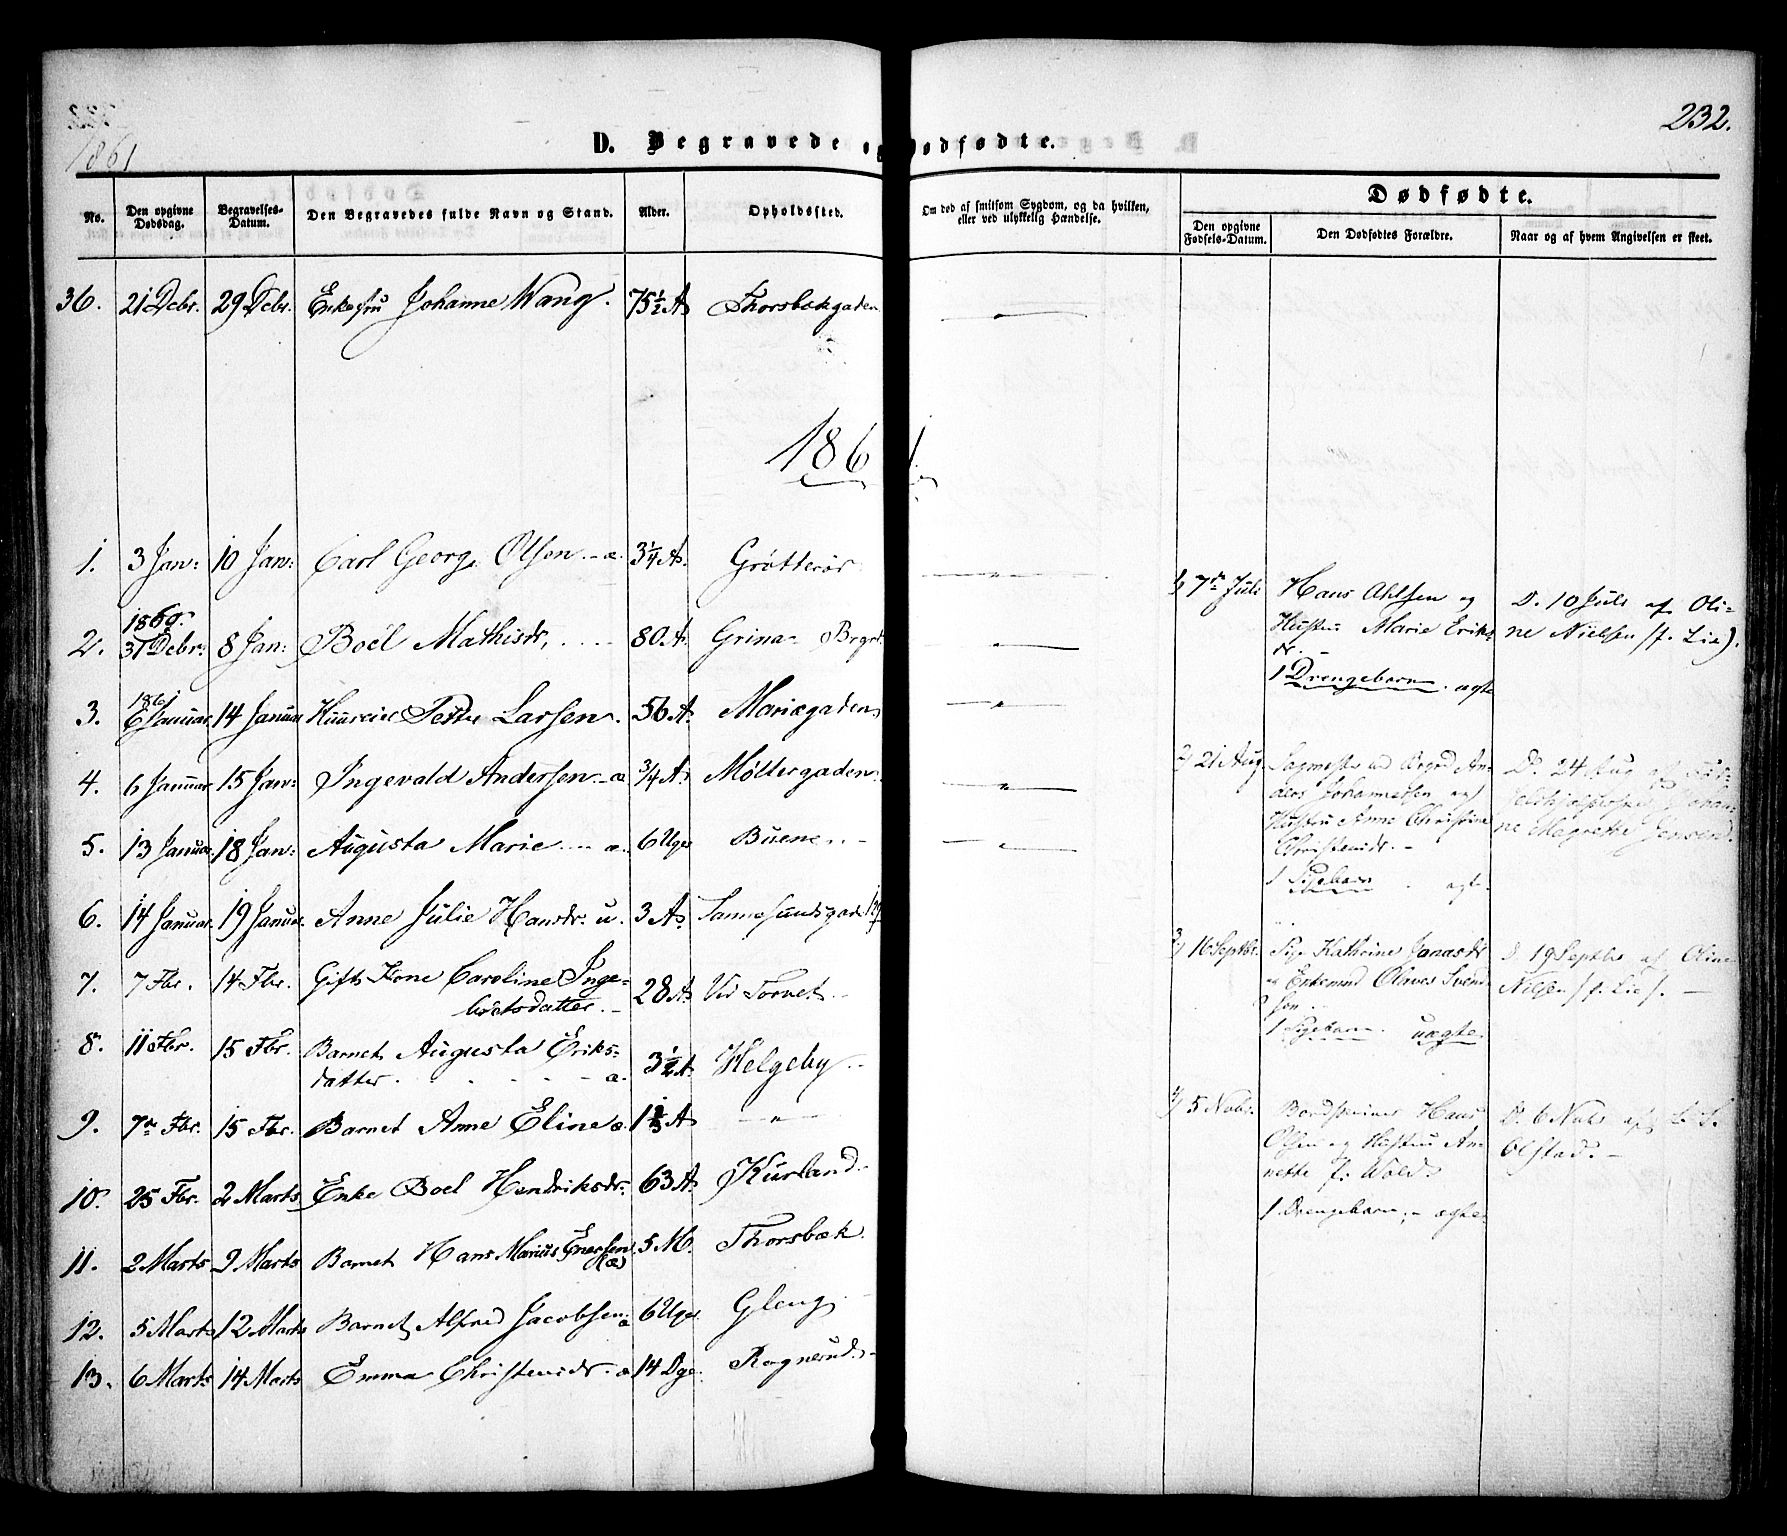 232.
1861
D. Begravede og Dødfødte.
No.
Den opgivne Dødsdag.
Begravelses-Datum.
Den Begravedes fulde Navn og Stand.
Alder.
Opholdssted.
Om død af smitsom Sygdom, og da hvilken, eller ved ulykkelig Hændelse.
Dødfødte.
Den opgivne Fødsels-Datum.
Den Dødfødtes Forældre.
Naar og af hvem Angivelsen er skeet.
36. 21 Debr. 29 Debr. Enkefru Johanne Wang. 75½ A Thorsbækgaden
1861.
1. 3 Jan: 10 Jan: Carl Georg Olsen. - æ. 3¼ A. Grøtterør
1860.
2. 31 Debr: 8 Jan: Boël Mathisdr, 80 A. Grina-
1861
3. 6 Januar 14 Januar Larsen. 56 A. Mariægaden
4. 6 Januar 15 Jan: Ingevald Andersen. - æ ¾ A. Møllergaden.
5. 13 Januar. 18 Jan: Augusta Marie æ. 6 Uger Buene.
6. 14 Januar. 19 Januar. Anne Julie Hansdr. u. 3 A. Sannesundsgad
7. 7 Fbr. 14 Fbr. Gifts Kone Caroline Inge-
bretsdatter. 28 A. Vid Torvet
8. 11 Fbr. 15 Fbr. Barnet Augusta Eriks-
datter. æ. 3½ A. Helgeby
9. 7de Fbr. 15 Fbr. Barnet Anne Eline æ. 1⅓ A — " —
10. 25 Fbr. 2 Marts Enke Boel Hendriksdr. 63 A. Kurland
11. 2 Marts 9 Marts Barnet Hans Marius Enersen (æ) 5 M. Thorsbæk.
12. 5 Marts 12 Marts Barnet Alfred Jacobsen æ 6 Uger Gleng
13. 6 Marts 14 Marts Emma Christensdr. æ 14 Dge. Ragnerud
1/ 7de Juli Hans Ahlsen og D. 10 Juli af Oli-
Hustru Marie Eriks- ne Nielsen (f. Lie).
dr. -
1 Drengebarn. ægte
2/ 21 Aug. ved An- D. 24 Aug af
ders Johannessen og
Hustru Anne Christine ne Magrette Jensen.
Christensdr. -
1 Pigebarn. ægt.
3/ 16 Septbr. Pige Kathrine Jonasdr D 19 Septbr af Oline
Enkemand Olaves Svend- Nilsen (f. Lie).
sen
1 Pigebarn. uægte.
4/ 5 Nobr. Hans D. 6 Nobr af
Olsen og Hustru An- Olstad. -
nette f. Wold.
1 Drengebarn, - ægte.